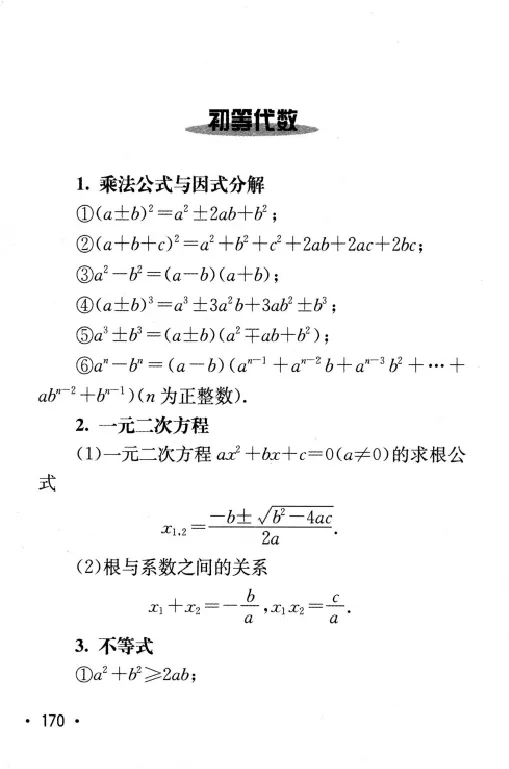 初等代数
1. 乘法公式与因式分解
①(a±b)²=a²±2ab+b²；
②(a+b+c)²=a²+b²+c²+2ab+2ac+2bc；
③a²−b²=(a−b)(a+b)；
④(a±b)³=a³±3a²b+3ab²±b³；
⑤a³±b³=(a±b)(a²∓ab+b²)；
⑥aⁿ−bⁿ=(a−b)(aⁿ⁻¹+aⁿ⁻²b+aⁿ⁻³b²+…+
abⁿ⁻²+bⁿ⁻¹)(n 为正整数).
2. 一元二次方程
(1)一元二次方程 ax²+bx+c=0(a≠0)的求根公
式
x₁,₂=(−b±√(b²−4ac))/(2a).
(2)根与系数之间的关系
x₁+x₂=−b/a, x₁x₂=c/a.
3. 不等式
①a²+b²≥2ab；
· 170 ·